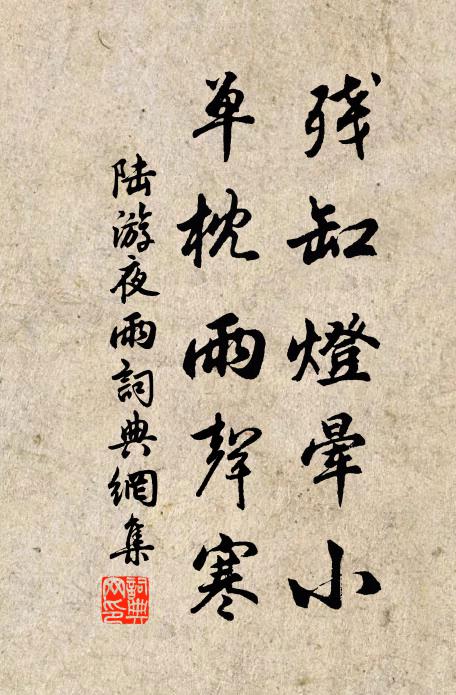 残缸燈暈小
单枕雨聲寒
陆游夜雨詞典網集
詞典网印